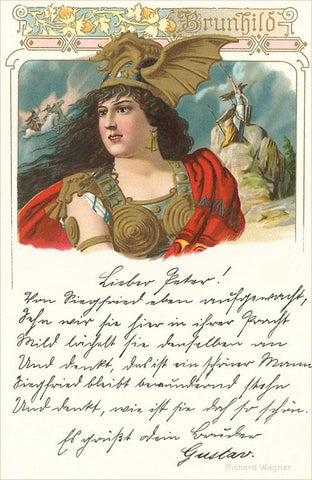 Brunhild
Lieber Peter!
Von Siegfried eben aufgewacht,
Sehn wir sie hier in ihrer Pracht
Mild lächelt sie denselben an
Und denkt, das ist ein schöner Mann
Siegfried bleibt bewundernd stehn
Und denkt, wie ist sie doch so schön.
Es grüßt dein Bruder
Gustav.
Richard Wagner